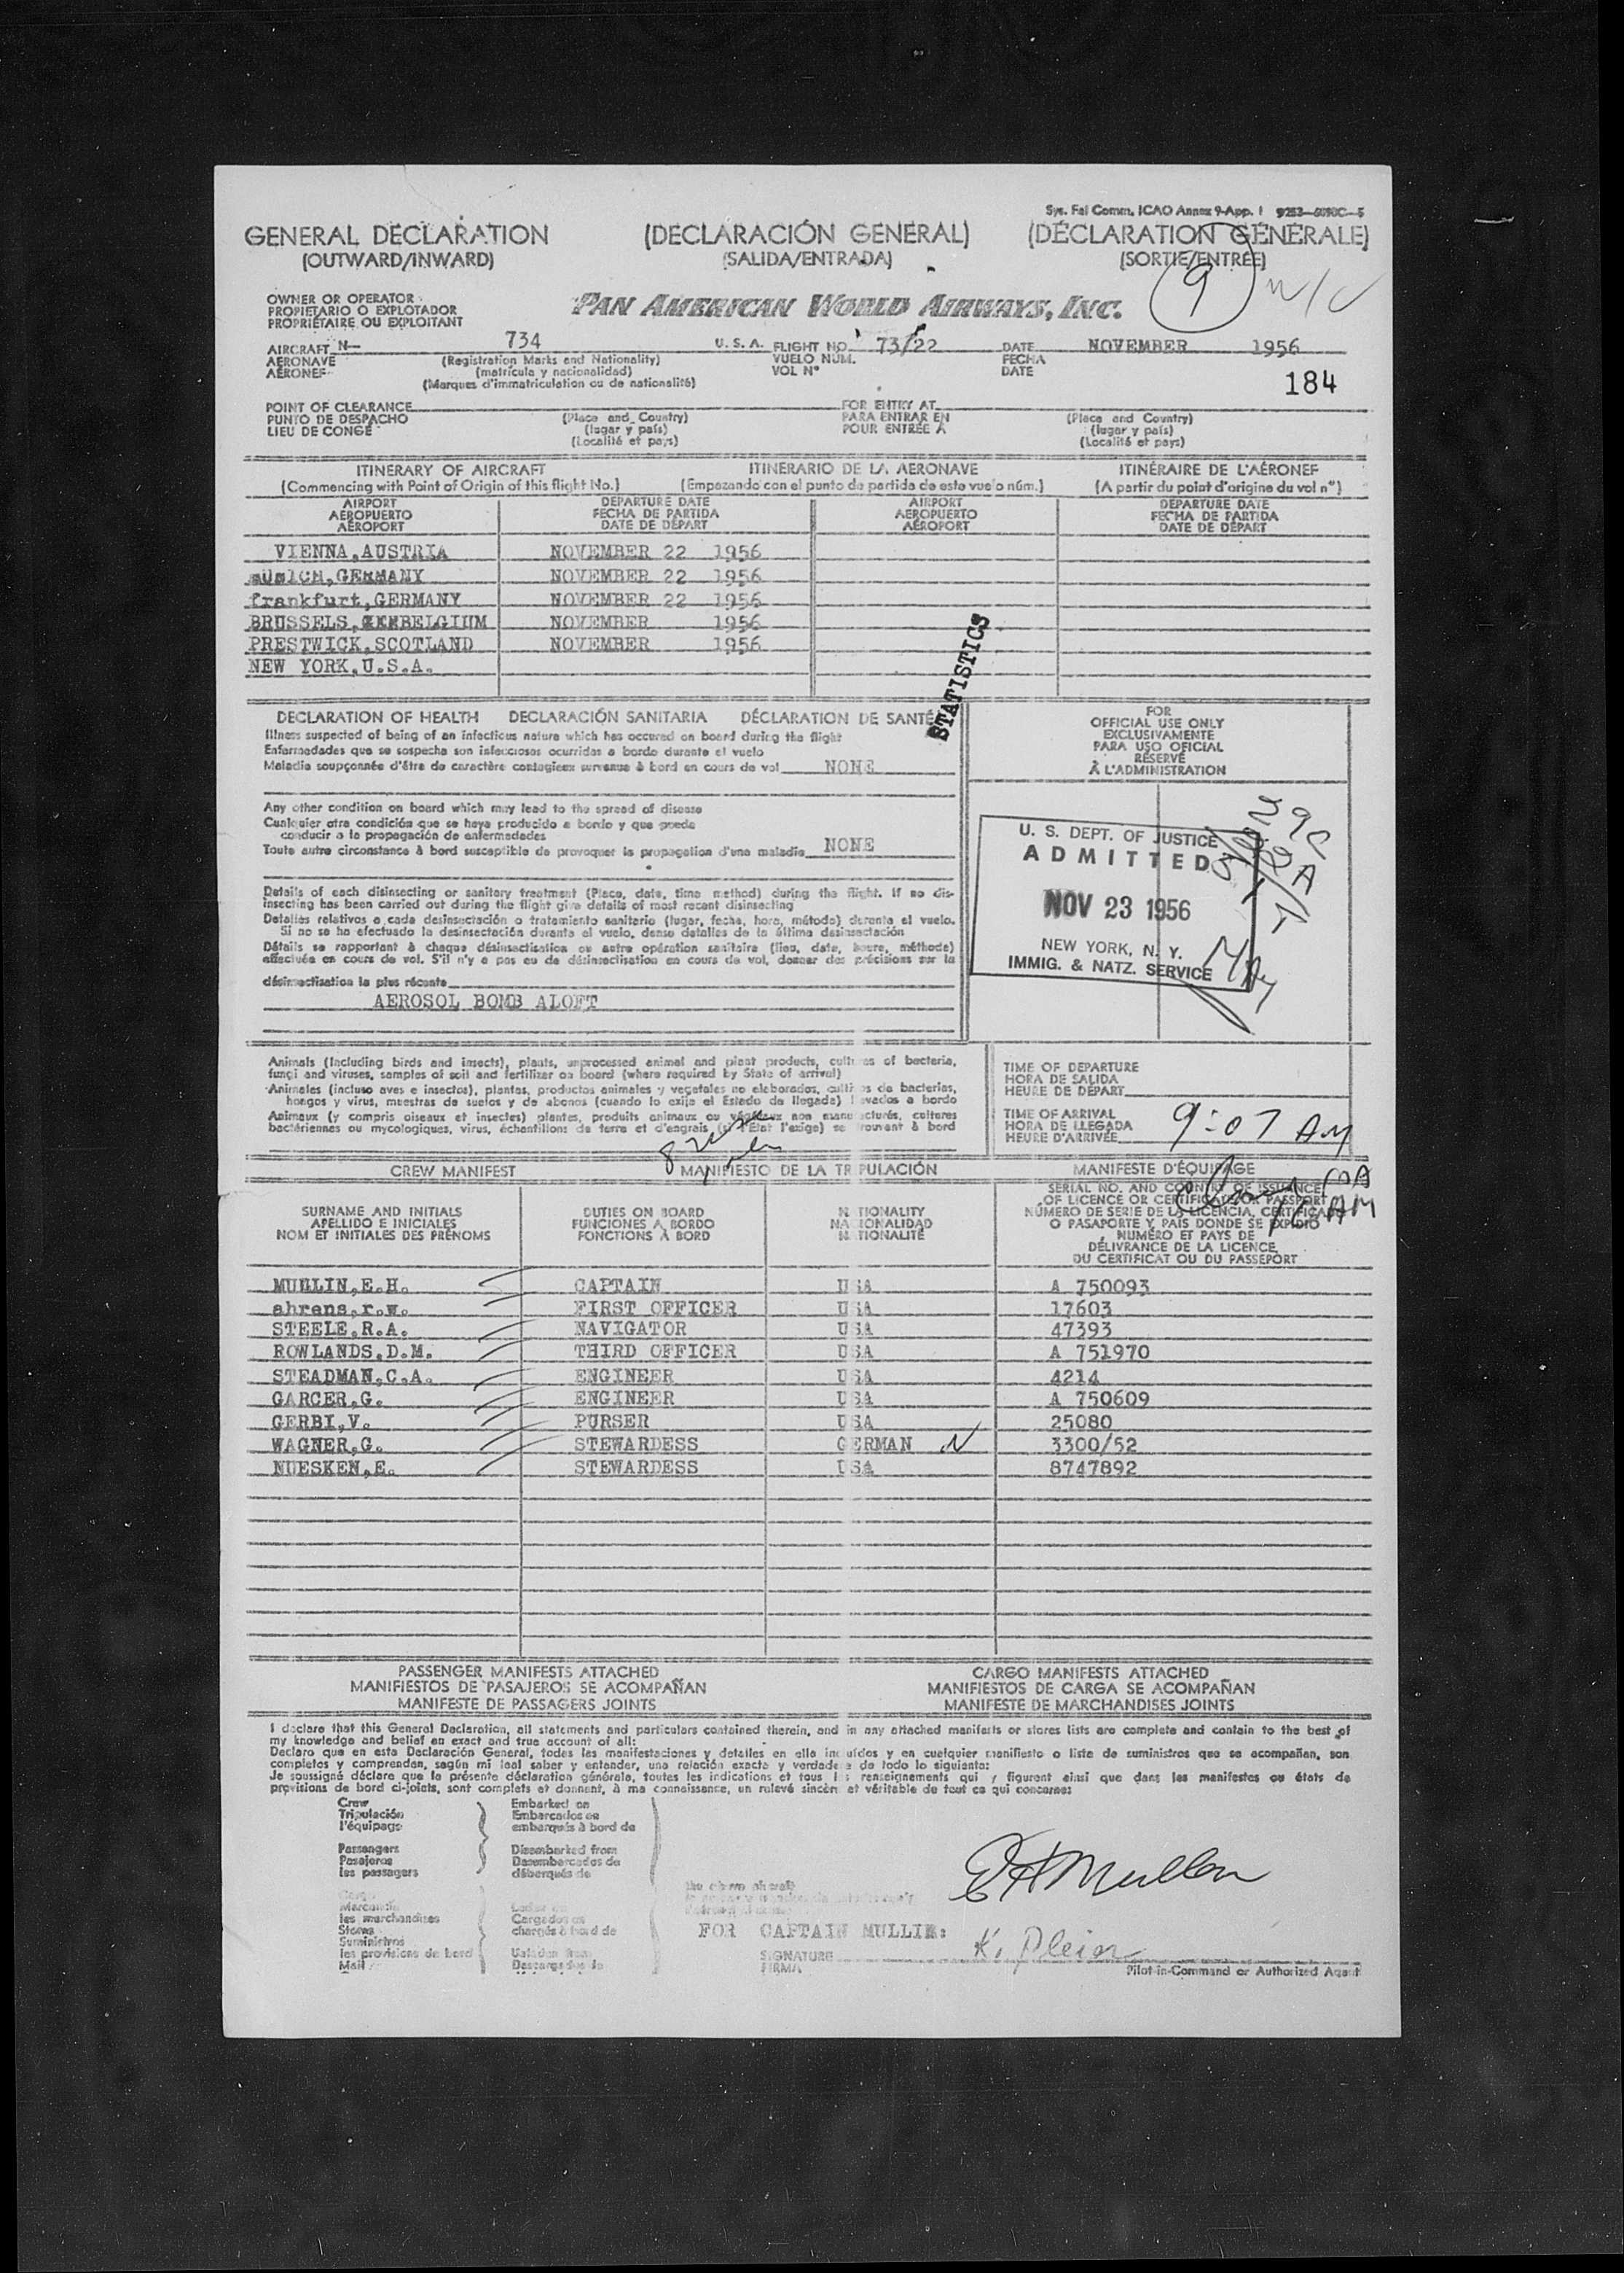 Sys. Fal Comm. ICAO Annex 9-App. I
GENERAL DECLARATION (DECLARACIÓN GENERAL) (DÉCLARATION GÉNÉRALE)
(OUTWARD/INWARD) (SALIDA/ENTRADA) (SORTIE/ENTRÉE)
9
OWNER OR OPERATOR
PROPIETARIO O EXPLOTADOR
PROPRIÉTAIRE OU EXPLOITANT
PAN AMERICAN WORLD AIRWAYS, INC.
AIRCRAFT N- 734 U. S. A. FLIGHT NO. 73/22 DATE NOVEMBER 1956
AERONAVE (Registration Marks and Nationality) VUELO NÚM. FECHA
AÉRONEF (matrícula y nacionalidad) VOL Nº DATE
(Marques d'immatriculation ou de nationalité)
184
POINT OF CLEARANCE FOR ENTRY AT
PUNTO DE DESPACHO (Place and Country) PARA ENTRAR EN (Place and Country)
LIEU DE CONGÉ (lugar y país) POUR ENTRÉE À (lugar y país)
(Localité et pays) (Localité et pays)
ITINERARY OF AIRCRAFT ITINERARIO DE LA AERONAVE ITINÉRAIRE DE L'AÉRONEF
(Commencing with Point of Origin of this flight No.) (Empezando con el punto de partida de este vuelo núm.) (A partir du point d'origine du vol n°)
AIRPORT DEPARTURE DATE AIRPORT DEPARTURE DATE
AEROPUERTO FECHA DE PARTIDA AEROPUERTO FECHA DE PARTIDA
AÉROPORT DATE DE DÉPART AÉROPORT DATE DE DÉPART
VIENNA,AUSTRIA NOVEMBER 22 1956
GERMANY NOVEMBER 22 1956
frankfurt,GERMANY NOVEMBER 22 1956
BRUSSELS, BELGIUM NOVEMBER 1956
PRESTWICK,SCOTLAND NOVEMBER 1956
NEW YORK,U.S.A.
STATISTICS
DECLARATION OF HEALTH DECLARACIÓN SANITARIA DÉCLARATION DE SANTÉ
Illness suspected of being of an infectious nature which has occured on board during the flight
Enfermedades que se sospecha son infecciosas ocurridas a bordo durante el vuelo
Maladie soupçonnée d'être de caractère contagieux survenue à bord en cours de vol NONE
FOR
OFFICIAL USE ONLY
EXCLUSIVAMENTE
PARA USO OFICIAL
RÉSERVÉ
À L'ADMINISTRATION
Any other condition on board which may lead to the spread of disease
Cualquier otra condición que se haya producido a bordo y que pueda
conducir a la propagación de enfermedades
Toute autre circonstance à bord susceptible de provoquer la propagation d'une maladie NONE
U. S. DEPT. OF JUSTICE
ADMITTED
NOV 23 1956
NEW YORK, N. Y.
IMMIG. & NATZ. SERVICE
Details of each disinsecting or sanitary treatment (Place, date, time method) during the flight. If no dis-
insecting has been carried out during the flight give details of most recent disinsecting
Detalles relativos a cada desinsectación o tratamiento sanitario (lugar, fecha, hora, método) durante el vuelo.
Si no se ha efectuado la desinsectación durante el vuelo, dense detalles de la última desinsectación
Détails se rapportant à chaque désinsectisation ou autre opération sanitaire (lieu, date, heure, méthode)
effectuée en cours de vol. S'il n'y a pas eu de désinsectisation en cours de vol, donner des précisions sur la
désinsectisation la plus récente
AEROSOL BOMB ALOFT
Animals (Including birds and insects), plants, unprocessed animal and plant products, cultures of bacteria,
fungi and viruses, samples of soil and fertilizer on board (where required by State of arrival)
Animales (incluso aves e insectos), plantas, productos animales y vegetales no elaborados, cultivos de bacterias,
hongos y virus, muestras de suelos y de abonos (cuando lo exija el Estado de llegada) llevados a bordo
Animaux (y compris oiseaux et insectes) plantes, produits animaux ou végétaux non manufacturés, cultures
bactériennes ou mycologiques, virus, échantillons de terre et d'engrais (si l'État l'exige) se trouvant à bord
TIME OF DEPARTURE
HORA DE SALIDA
HEURE DE DÉPART
TIME OF ARRIVAL
HORA DE LLEGADA
HEURE D'ARRIVÉE 9:07 AM
CREW MANIFEST MANIFIESTO DE LA TRIPULACIÓN MANIFESTE D'ÉQUIPAGE
SURNAME AND INITIALS
APELLIDO E INICIALES
NOM ET INITIALES DES PRÉNOMS
DUTIES ON BOARD
FUNCIONES A BORDO
FONCTIONS À BORD
NATIONALITY
NACIONALIDAD
NATIONALITÉ
SERIAL NO. AND COUNTRY OF ISSUANCE
OF LICENCE OR CERTIFICATE OR PASSPORT
NÚMERO DE SERIE DE LA LICENCIA, CERTIFICADO
O PASAPORTE Y PAÍS DONDE SE EXPIDIÓ
NUMÉRO ET PAYS DE
DÉLIVRANCE DE LA LICENCE
DU CERTIFICAT OU DU PASSEPORT
MULLIN,E.H. CAPTAIN USA A 750093
ahrens,r.w. FIRST OFFICER USA 17603
STEELE,R.A. NAVIGATOR USA 47393
ROWLANDS,D.M. THIRD OFFICER USA A 751970
STEADMAN,C.A. ENGINEER USA 4214
GARCER,G. ENGINEER USA A 750609
GERBI,V. PURSER USA 25080
WAGNER,G. STEWARDESS GERMAN N 3300/52
NUESKEN,E. STEWARDESS USA 8747892
PASSENGER MANIFESTS ATTACHED CARGO MANIFESTS ATTACHED
MANIFIESTOS DE PASAJEROS SE ACOMPAÑAN MANIFIESTOS DE CARGA SE ACOMPAÑAN
MANIFESTE DE PASSAGERS JOINTS MANIFESTE DE MARCHANDISES JOINTS
I declare that this General Declaration, all statements and particulars contained therein, and in any attached manifests or stores lists are complete and contain to the best of
my knowledge and belief an exact and true account of all:
Declaro que en esta Declaración General, todas las manifestaciones y detalles en ella incluídos y en cuelquier manifiesto o lista de suministros que se acompañan, son
completos y comprenden, según mi leal saber y entender, una relación exacta y verdadera de todo lo siguiente:
Je soussigné déclare que la présente déclaration générale, toutes les indications et tous les renseignements qui y figurent ainsi que dans les manifestes ou états de
provisions de bord ci-joints, sont complets et donnent, à ma connaissance, un relevé sincère et véritable de tout ce qui concerne:
Crew Embarked on
Tripulación Embarcados en
l'équipage embarqués à bord de
Passengers Disembarked from
Pasajeros Desembarcados de
les passagers débarqués de
Cargo
Mercancía
les marchandises Cargados en
Stores chargés à bord de
Suministros
les provisions de bord Unladen from
Mail Descargados de
the above aircraft
EH Mullen
FOR CAPTAIN MULLIN:
SIGNATURE K. Pleier
FIRMA
Pilot-in-Command or Authorized Agent